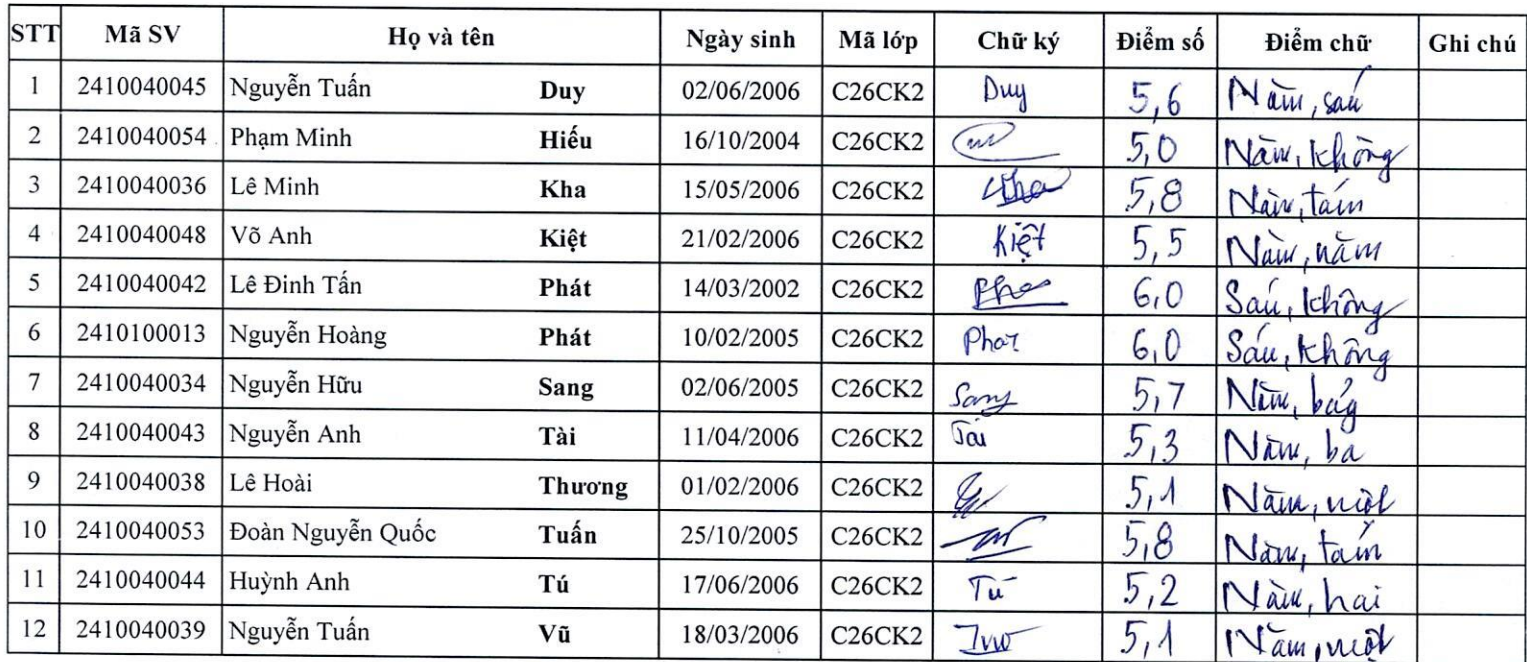 STT Mã SV Họ và tên Ngày sinh Mã lớp Chữ ký Điểm số Điểm chữ Ghi chú
1 2410040045 Nguyễn Tuấn Duy 02/06/2006 C26CK2 Duy 5,6 Năm, sáu
2 2410040054 Phạm Minh Hiếu 16/10/2004 C26CK2 5,0 Năm, không
3 2410040036 Lê Minh Kha 15/05/2006 C26CK2 Kha 5,8 Năm, tám
4 2410040048 Võ Anh Kiệt 21/02/2006 C26CK2 Kiệt 5,5 Năm, năm
5 2410040042 Lê Đinh Tấn Phát 14/03/2002 C26CK2 6,0 Sáu, không
6 2410100013 Nguyễn Hoàng Phát 10/02/2005 C26CK2 Phát 6,0 Sáu, không
7 2410040034 Nguyễn Hữu Sang 02/06/2005 C26CK2 Sang 5,7 Năm, bảy
8 2410040043 Nguyễn Anh Tài 11/04/2006 C26CK2 Tài 5,3 Năm, ba
9 2410040038 Lê Hoài Thương 01/02/2006 C26CK2 5,1 Năm, một
10 2410040053 Đoàn Nguyễn Quốc Tuấn 25/10/2005 C26CK2 5,8 Năm, tám
11 2410040044 Huỳnh Anh Tú 17/06/2006 C26CK2 Tú 5,2 Năm, hai
12 2410040039 Nguyễn Tuấn Vũ 18/03/2006 C26CK2 5,1 Năm, một